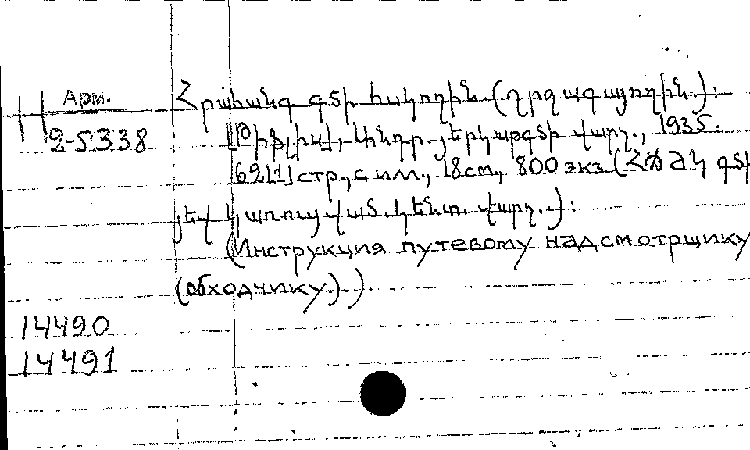 Арм.
2-5338
Հրահանգ գծի հսկողին (շրջագայողին.):
[Թիֆլիս], Անդր. յերկաթգծի վարչ., 1935.
62[1] стр., с илл., 18 см, 800 экз. (ՀՓՁԿ գծի
յեվ կառուցված. կենտ. վարչ.):
(Инструкция путевому надсмотрщику
(обходчику.))
14490
14491